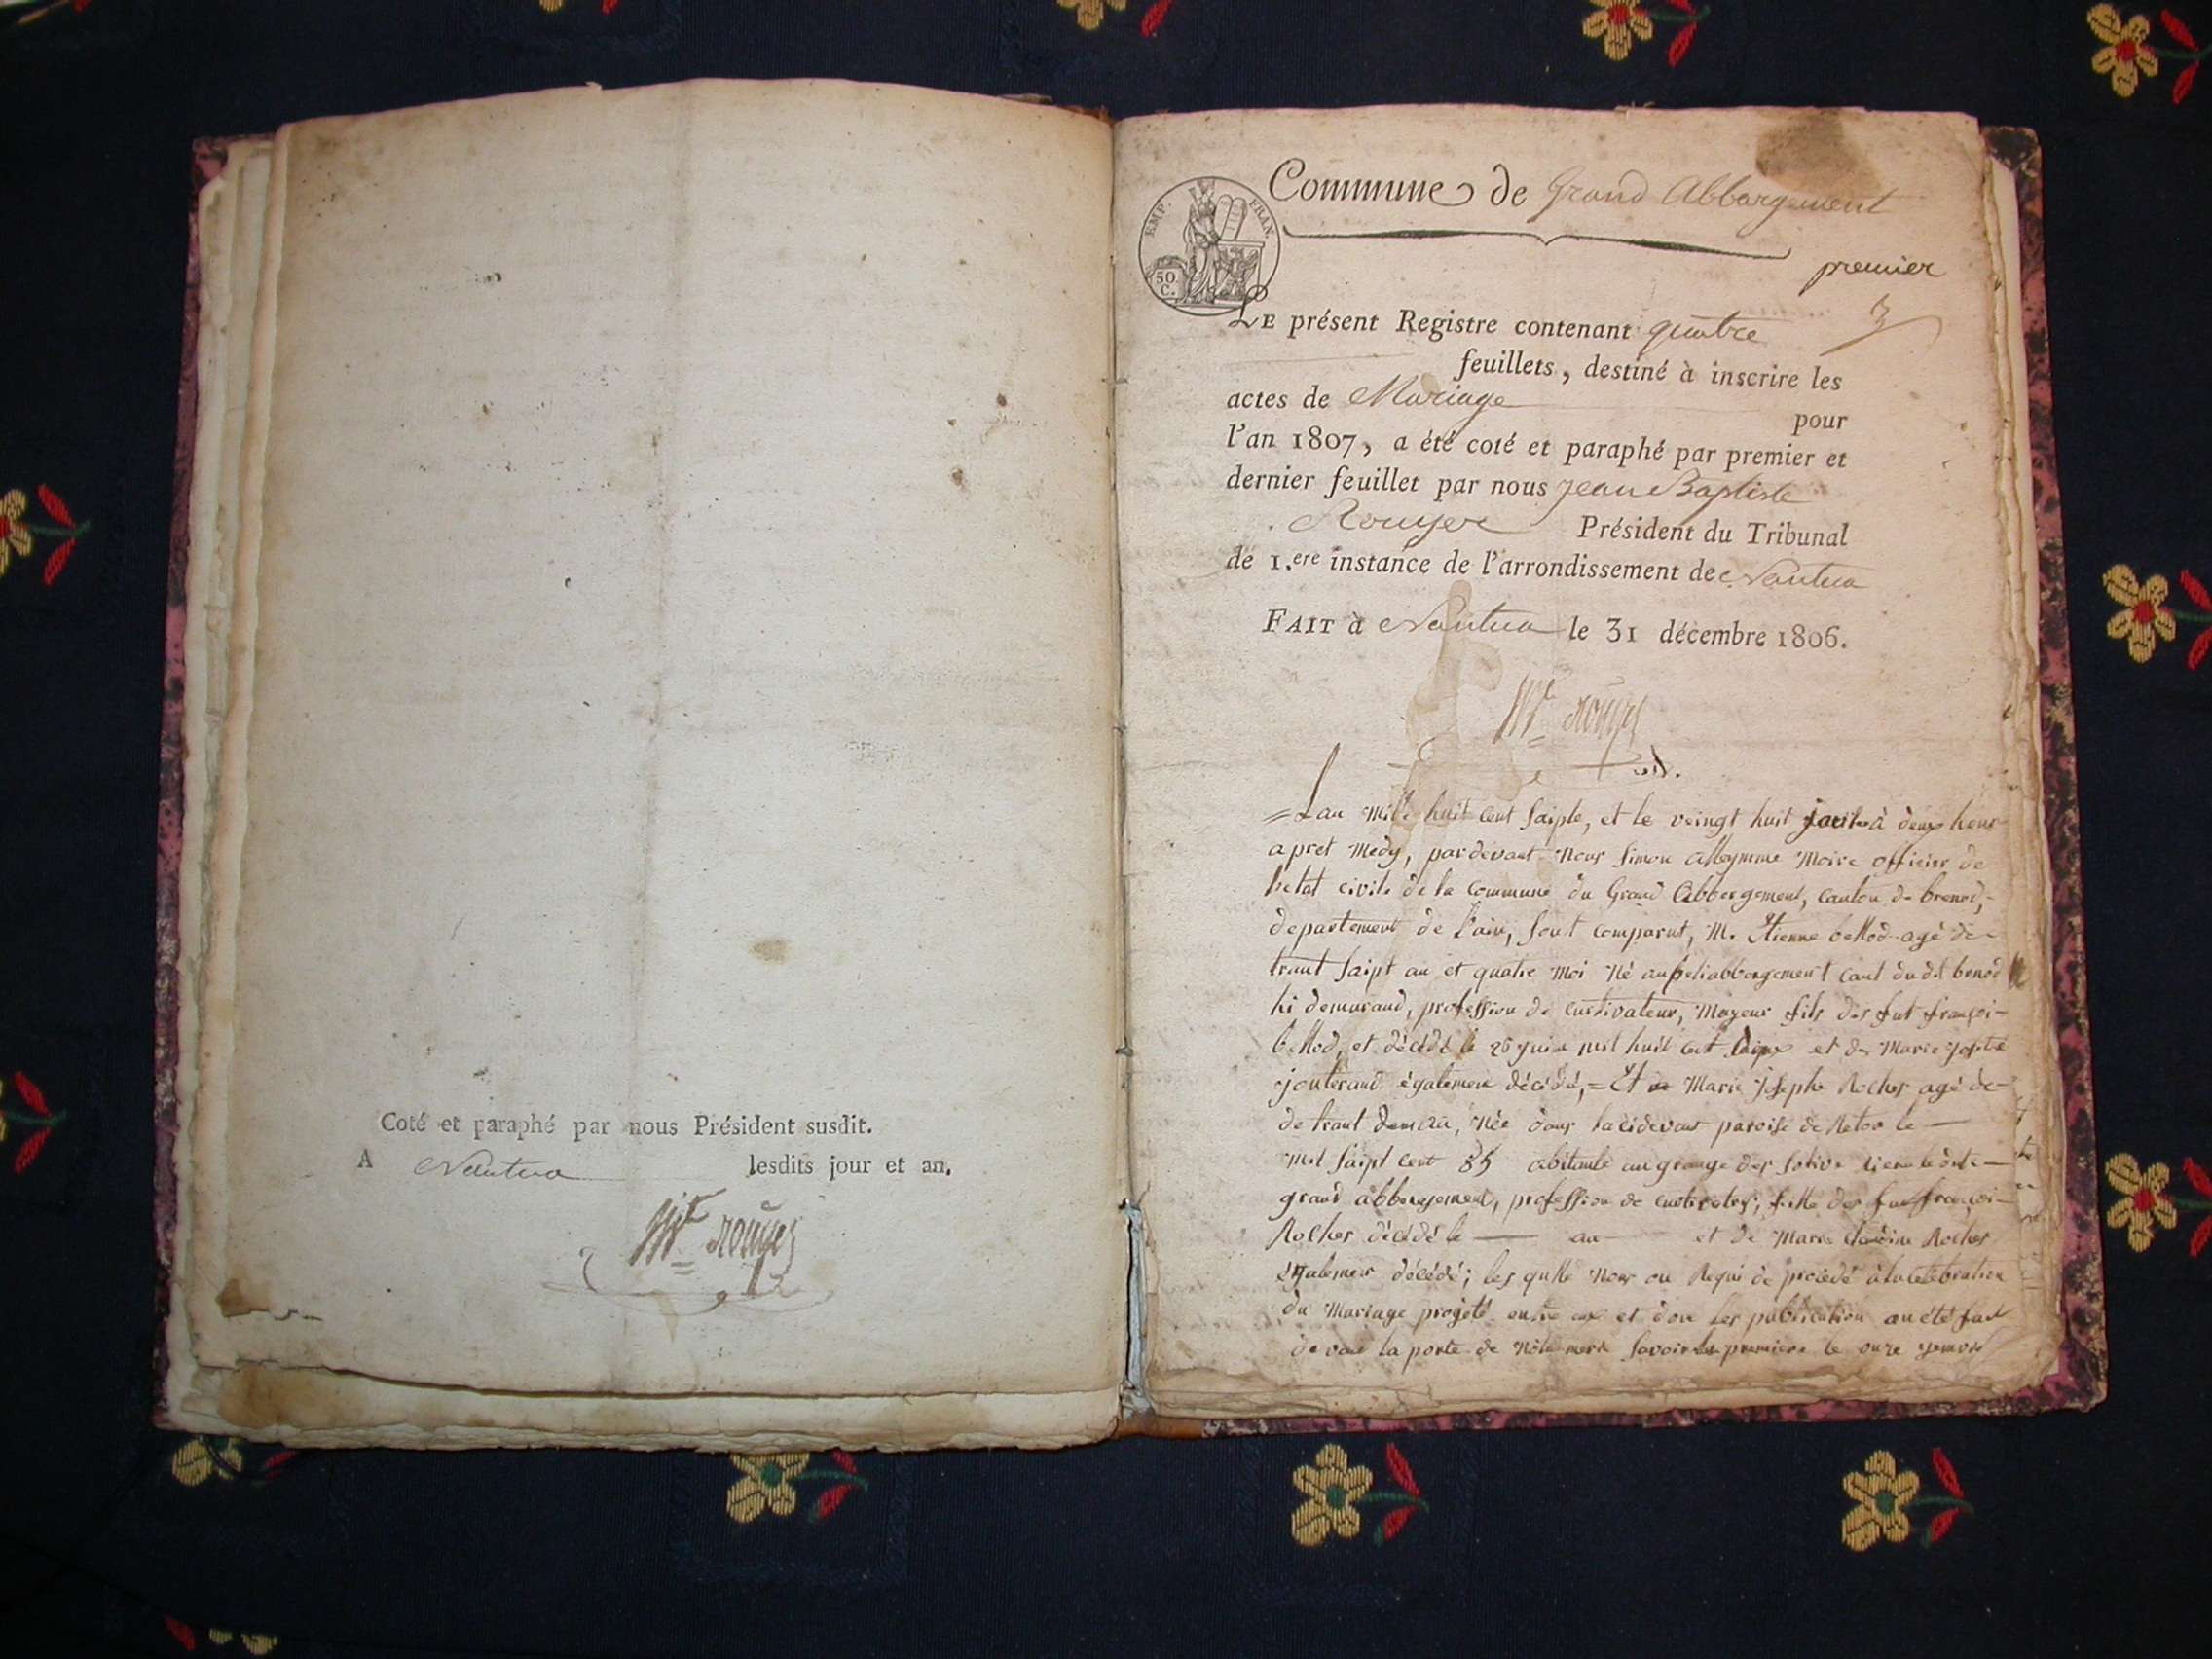 Coté et paraphé par nous Président susdit.
A Nantua lesdits jour et an.
Mt rouyer
EMP. FRAN.
50 C.
Commune de Grand Abbergement
premier
LE présent Registre contenant quatre
feuillets, destiné à inscrire les
actes de Mariage pour
l'an 1807, a été coté et paraphé par premier et
dernier feuillet par nous Jean Baptiste
Rouyer Président du Tribunal
de 1.ere instance de l'arrondissement de Nantua
FAIT à Nantua le 31 décembre 1806.
Mt rouyer
Lan mille huit cent saipte, et le veingt huit à deux heur
apret medy, pardevant Nous Simon maire officier de
letat civile de la Commune du Grand Abbergement, canton de brenod,
departement de l'ain, sont comparut, M. Étienne bellod agé de
trant saipt an et quatre moi né au petiabbergement cant dudit brenod
profession de cultivateur, mageur fils des fut françoi
bellod, et décédé le 26 juin mil huit cent et de Marie
également décédé, = Et Marie joseph Rolher agé de
de trant née dans lacidevant paroise de le
mil saipt cent 85 abitante au grange des
grand abbergement, profession de fille des fut françoi
Rolher décédé le an et de Marie Rolher
également décédé; les quelle nous on requi de procédé à la célébration
du Mariage projeté entre eux et don les publication on été fait
devant la porte de notre savoir la premiere le onze